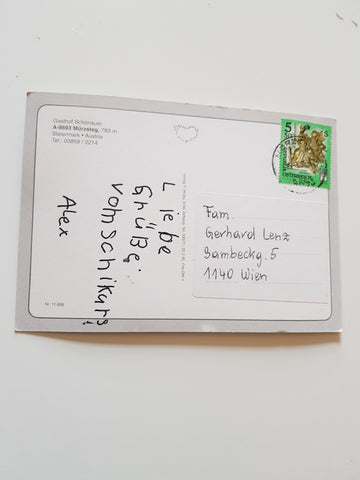 Gasthof Schönauer
A-8693 Mürzsteg, 783 m
Steiermark • Austria
Tel.: 03859 / 2214
Liebe
Grüße
vom Schikurs!
Alex
Fam.
Gerhard Lenz
Sambeckg. 5
1140 Wien
5
S
ÖSTERREICH
Nr. 11.808